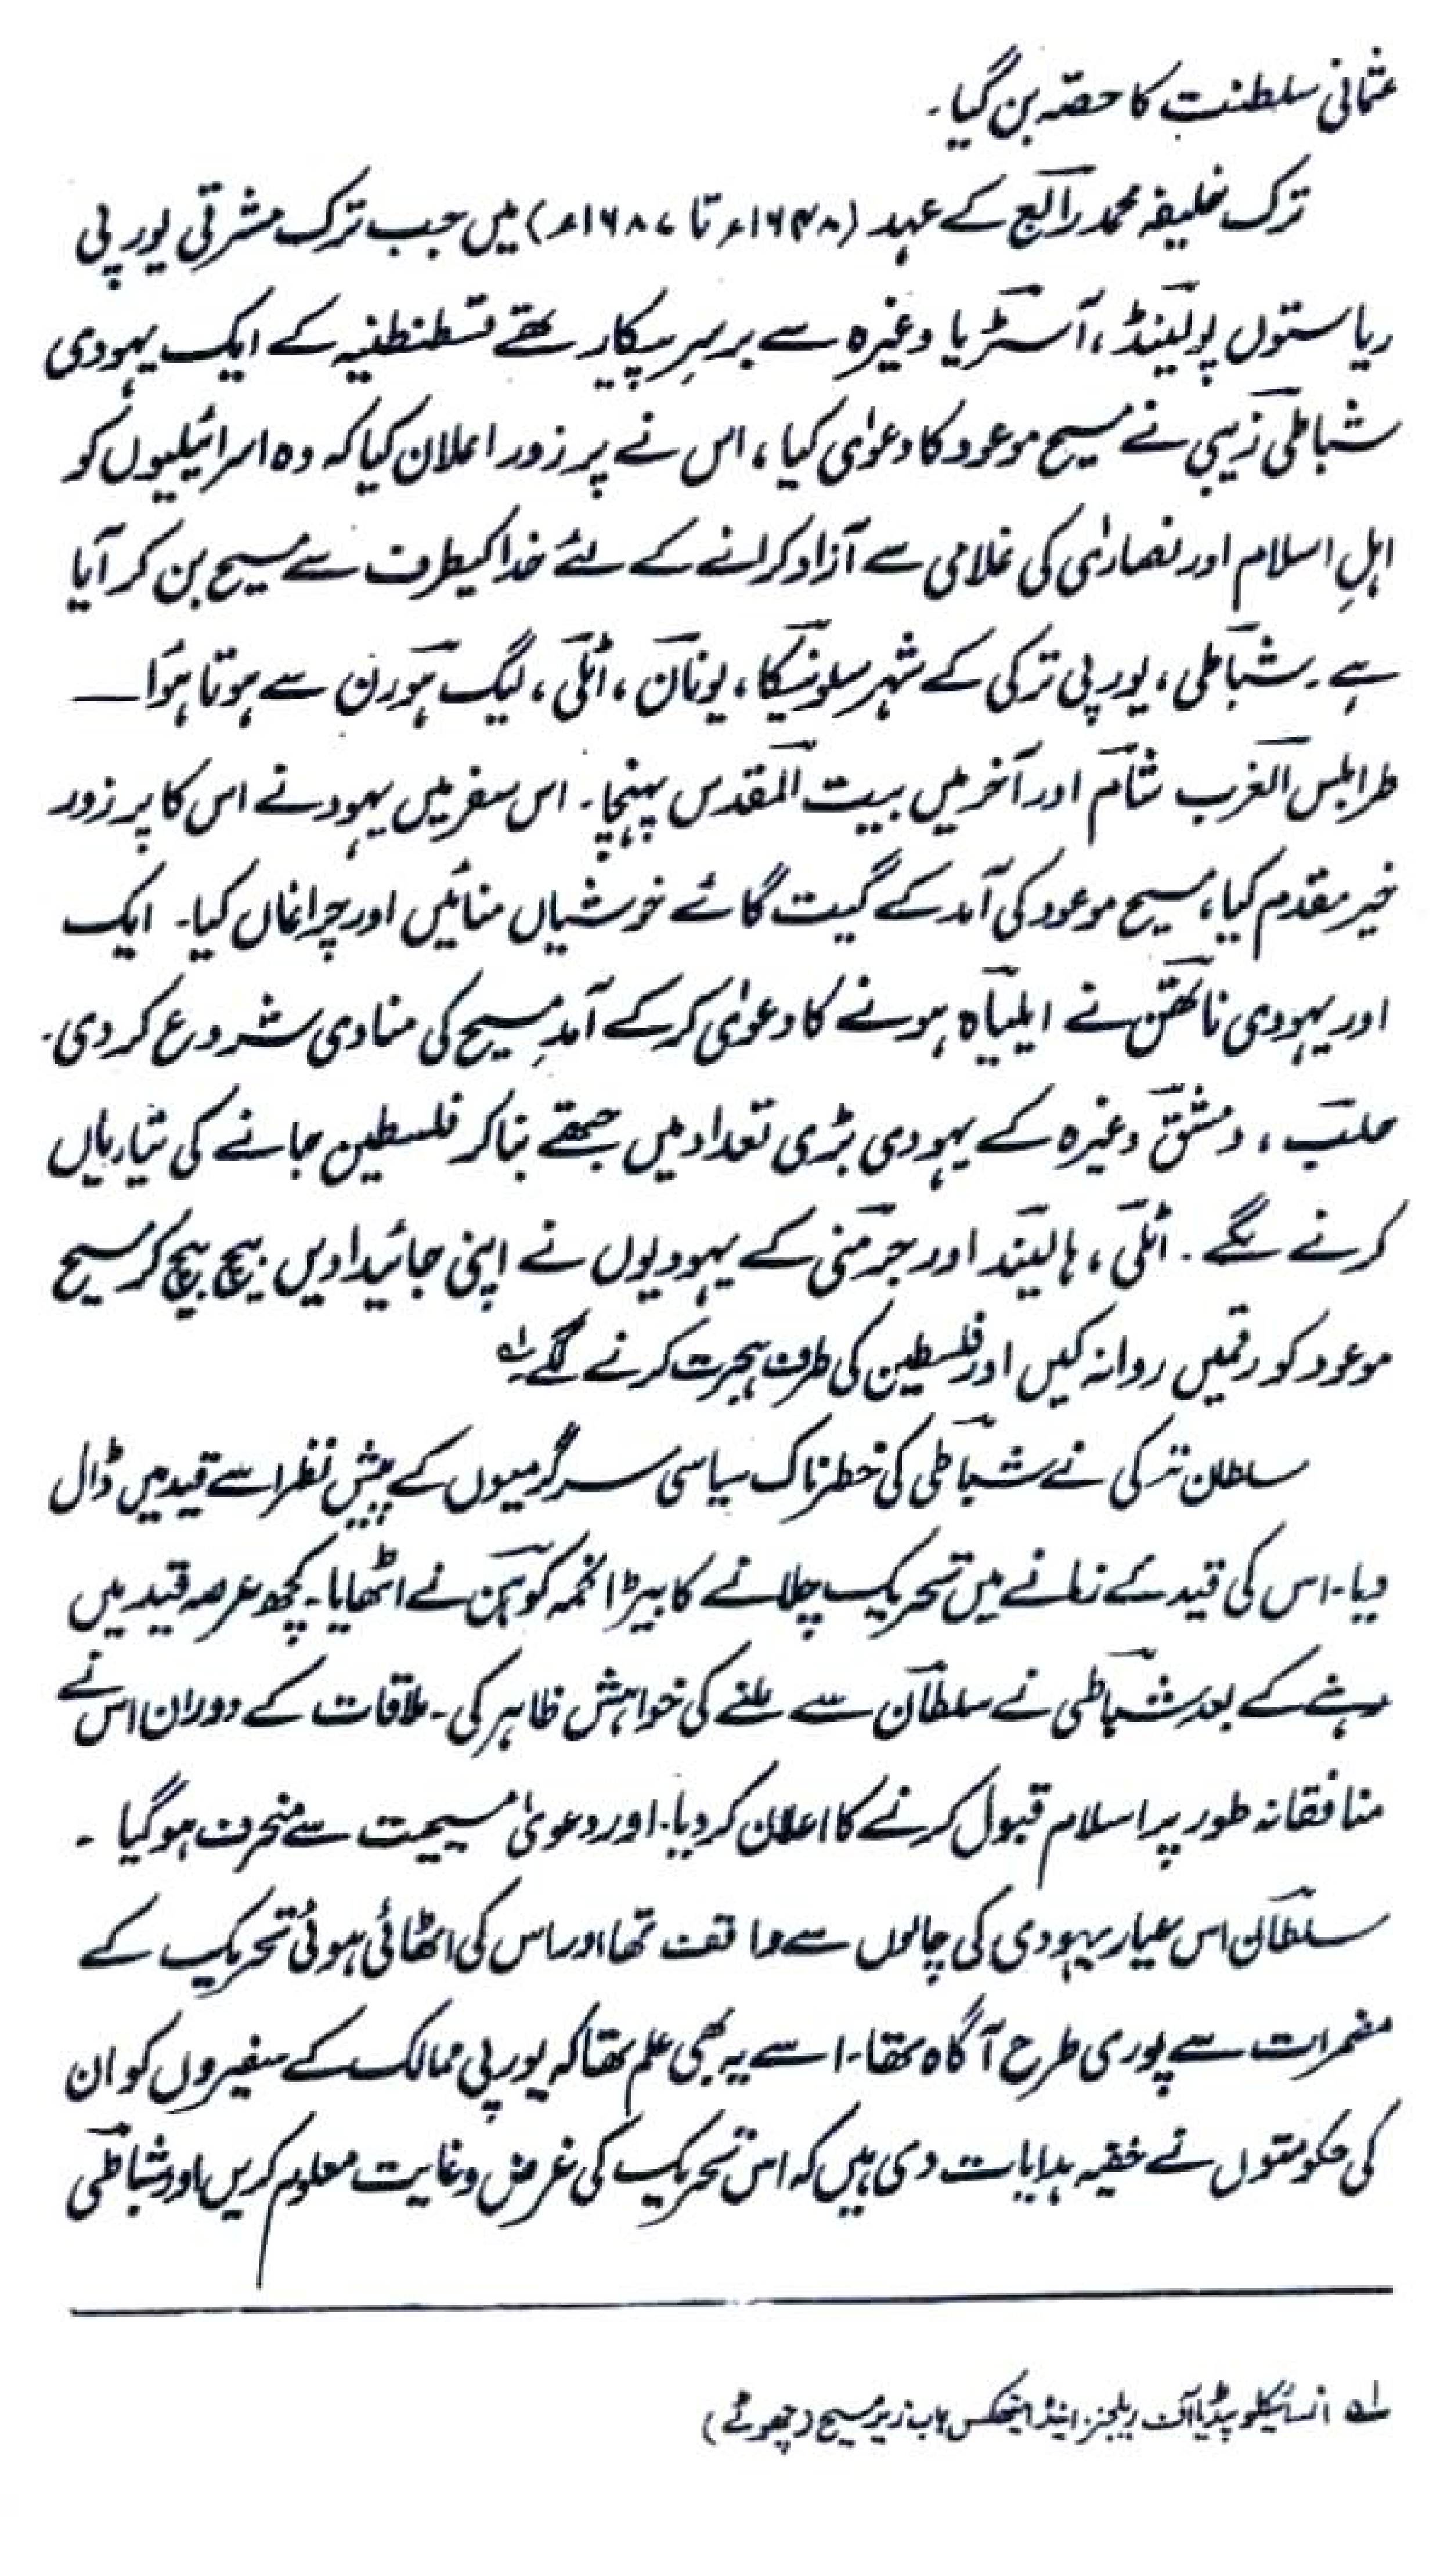 عثمانی سلطنت کا حصہ بن گیا۔
ترک خلیفہ محمد رابع کے عہد (۱۶۴۸ء تا ۱۶۸۷ء) میں جب ترک مشرقی یورپی
ریاستوں پولینڈ، آسٹریا وغیرہ سے برسرِ پیکار تھے قسطنطنیہ کے ایک یہودی
شباطی زیبی نے مسیح موعود کا دعوٰی کیا، اس نے پر زور اعلان کیا کہ وہ اسرائیلیوں کو
اہلِ اسلام اور نصارٰی کی غلامی سے آزاد کرانے کے لئے خدا کیطرف سے مسیح بن کر آیا
ہے۔ شباطی، یورپی ترکی کے شہر سلونیکا، یونان، اٹلی، لیگ ہورن سے ہوتا ہوا ــــ
طرابلس الغرب شام اور آخر میں بیت المقدس پہنچا۔ اس سفر میں یہود نے اس کا پر زور
خیر مقدم کیا، مسیح موعود کی آمد کے گیت گائے خوشیاں منائیں اور چراغاں کیا۔ ایک
اور یہودی ناتھن نے ایلیاہ ہونے کا دعوٰی کر کے آمدِ مسیح کی منادی شروع کر دی۔
حلب، دمشق وغیرہ کے یہودی بڑی تعداد میں جتھے بنا کر فلسطین جانے کی تیاریاں
کرنے لگے۔ اٹلی، ہالینڈ اور جرمنی کے یہودیوں نے اپنی جائیدادیں بیچ بیچ کر مسیح
موعود کو رقمیں روانہ کیں اور فلسطین کی طرف ہجرت کرنے لگے۔ ۱ھ
سلطان ترکی نے شباطی کی خطرناک سیاسی سرگرمیوں کے پیش نظر اسے قید میں ڈال
دیا۔ اس کی قید کے زمانے میں تحریک چلانے کا بیڑا نحمہ کوہن نے اٹھایا۔ کچھ عرصہ قید میں
رہنے کے بعد شباطی نے سلطان سے ملنے کی خواہش ظاہر کی۔ ملاقات کے دوران اس نے
منافقانہ طور پر اسلام قبول کرنے کا اعلان کر دیا۔ اور دعویٰ مسیحیت سے منحرف ہو گیا۔
سلطان اس عیار یہودی کی چالوں سے واقف تھا اور اس کی اٹھائی ہوئی تحریک کے
مضمرات سے پوری طرح آگاہ تھا۔ اسے یہ بھی علم تھا کہ یورپی ممالک کے سفیروں کو ان
کی حکومتوں نے خفیہ ہدایات دی ہیں کہ اس تحریک کی غرض و غایت معلوم کریں اور شباطی
۱ھ انسائیکلو پیڈیا آف ریلیجنز اینڈ ایتھکس باب زیر مسیح (جھوٹے)